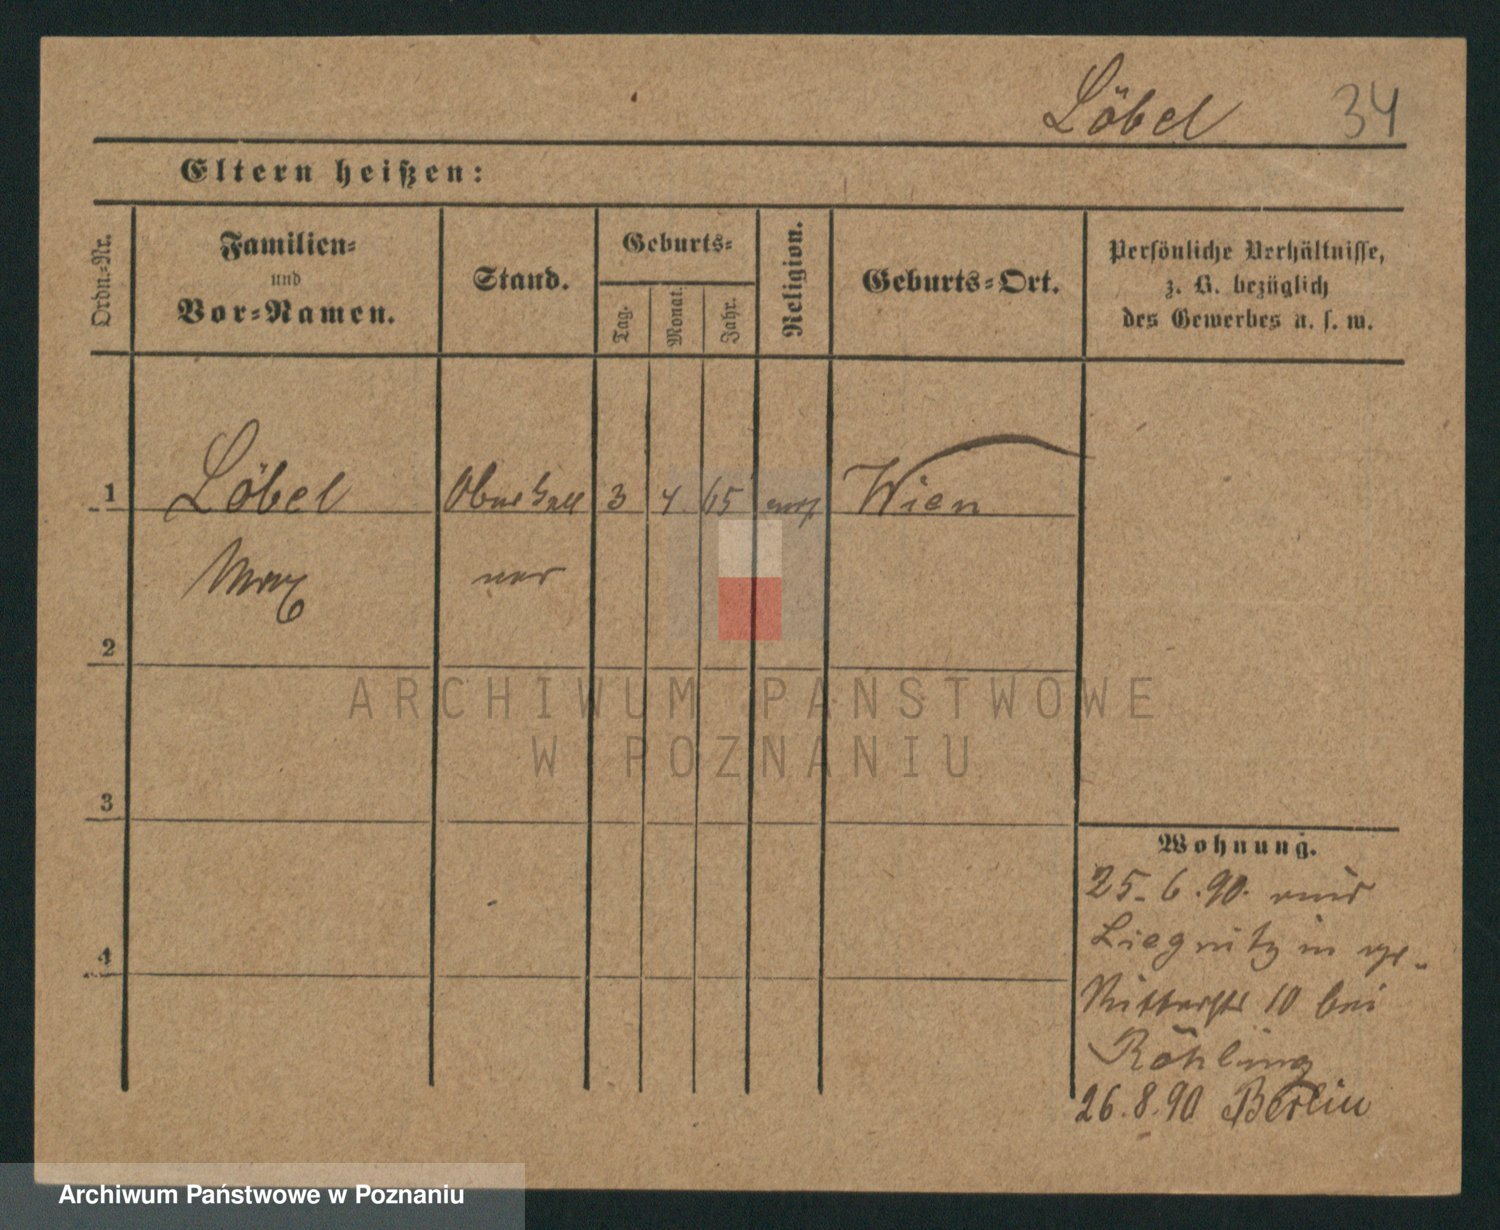 Löbel 34
Eltern heißen:
Ordn.-Nr.
Familien-
und
Vor-Namen.
Stand.
Geburts-
Tag.
Monat.
Jahr.
Religion.
Geburts-Ort.
Persönliche Verhältnisse,
z. B. bezüglich
des Gewerbes u. s. w.
1 Löbel 3 4 65 Wien
Max ner
2
ARCHIWUM PAŃSTWOWE
W POZNANIU
3
Wohnung.
25.6.90. aus
Liegnitz in
4
Ritterstr 10 bei
Röhling
26.8.90 Berlin
Archiwum Państwowe w Poznaniu